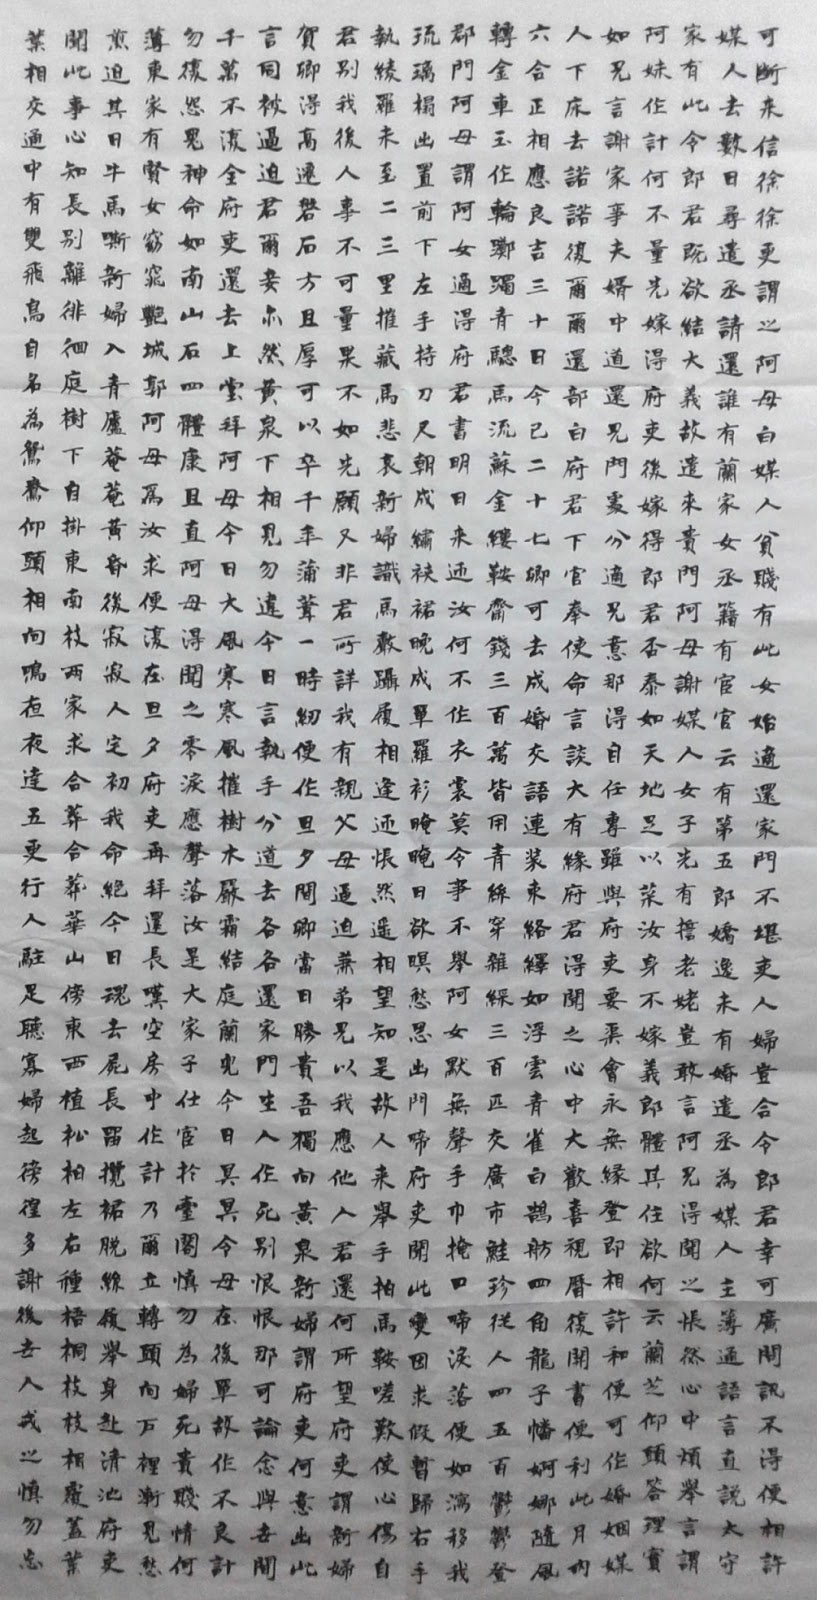 可断来信徐徐更謂之阿母白媒人貧賤有此女始適還家門不堪吏人婦豈合令郎君幸可廣問訊不得便相許
媒人去數日尋遣丞請還誰有蘭家女丞籍有宦官云有第五郎嬌逸未有婚遣丞為媒人主薄通語言直説太守
家有此令郎君既欲結大義故遣来貴門阿母謝媒人女子先有誓老姥豈敢言阿兄得聞之悵然心中煩舉言謂
阿妹作計何不量先嫁得府吏後嫁得郎君否泰如天地足以荣汝身不嫁義郎體其住欲何云蘭芝仰頭答理實
如兄言謝家事夫婿中道還兄門處分適兄意那得自任專雖與府吏要渠會永無縁登即相許和便可作婚姻媒
人下床去諾諾復爾爾還部白府君下官奉使命言談大有緣府君得聞之心中大歡喜視曆復開書便利此月內
六合正相應良吉三十日今已二十七卿可去成婚交語連装束絡繹如浮雲青雀白鵠舫四角龍子幡婀娜隨風
轉金車玉作輪躑躅青驄馬流蘇金縷鞍齎錢三百萬皆用青絲穿雜綵三百匹交廣市鮭珍従人四五百鬱鬱登
郡門阿母謂阿女適得府君書明日来迎汝何不作衣裳莫令事不舉阿女默無聲手巾掩口啼淚落便如瀉移我
琉璃榻出置前下左手持刀尺朝成繡裌裙晩成單羅衫晻晻日欲暝愁思出門啼府吏聞此變因求假暫歸右手
執綾羅未至二三里摧藏馬悲哀新婦識馬聲躡履相逢迎悵然遥相望知是故人来舉手拍馬鞍嗟歎使心傷自
君別我後人事不可量果不如先願又非君所詳我有親父母逼迫兼弟兄以我應他人君還何所望府吏謂新婦
賀卿得高遷磐石方且厚可以卒千年蒲葦一時紉便作旦夕間卿當日勝貴吾獨向黄泉新婦謂府吏何意出此
言同被逼迫君爾妾亦然黄泉下相見勿違今日言執手分道去各各還家門生人作死别恨恨那可論念與世間
千萬不復全府吏還去上堂拜阿母今日大風寒寒風摧樹木嚴霜結庭蘭兒今日冥冥令母在後單故作不良計
勿復怨鬼神命如南山石四體康且直阿母得聞之零淚應聲落汝是大家子仕宦於臺閣慎勿為婦死貴賤情何
薄東家有賢女窈窕艷城郭阿母為汝求便復在旦夕府吏再拜還長嘆空房中作計乃爾立轉頭向户裡漸見愁
煎迫其日牛馬嘶新婦入青廬菴菴黄昏後寂寂人定初我命絕今日魂去屍長留攬裙脱絲履舉身赴清池府吏
聞此事心知長別離徘徊庭樹下自掛東南枝両家求合葬合葬華山傍東西植松柏左右種梧桐枝枝相覆蓋葉
葉相交通中有雙飛鳥自名為鴛鴦仰頭相向鳴夜夜達五更行人駐足聽寡婦起傍徨多謝後世人戒之慎勿忘